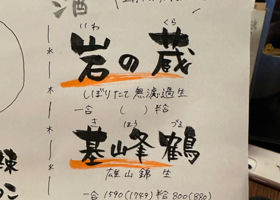 酒
いわ くら
岩の蔵
しぼりたて無濾過生
一合 ( ) 半合
き ほう づる
基峰鶴
雄山錦 生
一合 1590(1749) 半合 800(880)